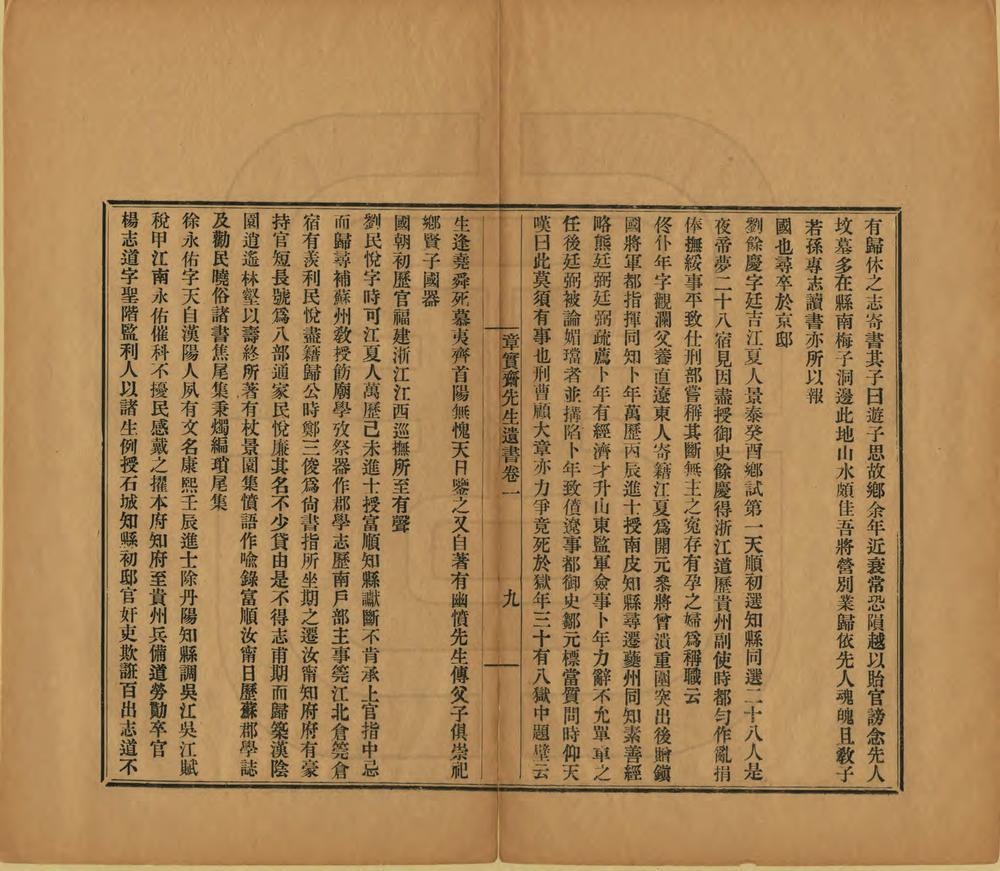 有歸休之志寄書其子曰遊子思故鄉余年近衰常恐隕越以貽官謗念先人
墳墓多在縣南梅子洞邊此地山水頗佳吾將營別業歸依先人魂魄且敎子
若孫專志讀書亦所以報
國也尋卒於京邸
劉餘慶字廷吉江夏人景泰癸酉鄉試第一天順初選知縣同選二十八人是
夜帝夢二十八宿見因盡授御史餘慶得浙江道歷貴州副使時都勻作亂捐
俸撫綏事平致仕刑部嘗稱其斷無主之寃存有孕之婦爲稱職云
佟卜年字觀瀾父養直遼東人寄籍江夏爲開元叅將曾潰重圍突出後贈鎭
國將軍都指揮同知卜年萬歷丙辰進士授南皮知縣尋遷夔州同知素善經
略熊廷弼廷弼疏薦卜年有經濟才升山東監軍僉事卜年力辭不允單車之
任後廷弼被論媚璫者並搆陷卜年致僨遼事都御史鄒元標當質問時仰天
嘆曰此莫須有事也刑曹顧大章亦力爭竟死於獄年三十有八獄中題壁云
章實齋先生遺書卷一
九
生逢堯舜死慕夷齊首陽無愧天日鑒之又自著有幽憤先生傳父子俱崇祀
鄉賢子國器
國朝初歷官福建浙江江西巡撫所至有聲
劉民悅字時可江夏人萬歷己未進士授富順知縣讞斷不肯承上官指中忌
而歸尋補蘇州敎授飭廟學攷祭器作郡學志歷南戶部主事筦江北倉筦倉
宿有羨利民悅盡籍歸公時鄭三俊爲尙書指所坐期之遷汝甯知府府有豪
持官短長號爲八部通家民悅廉其名不少貸由是不得志甫期而歸築漢陰
園逍遙林壑以壽終所著有杖景園集憤語作喩錄富順汝甯日歷蘇郡學誌
及勸民曉俗諸書焦尾集秉燭編瑣尾集
徐永佑字天自漢陽人夙有文名康熙壬辰進士除丹陽知縣調吳江吳江賦
稅甲江南永佑催科不擾民感戴之擢本府知府至貴州兵備道勞勩卒官
楊志道字聖階監利人以諸生例授石城知縣初邸官奸吏欺誑百出志道不